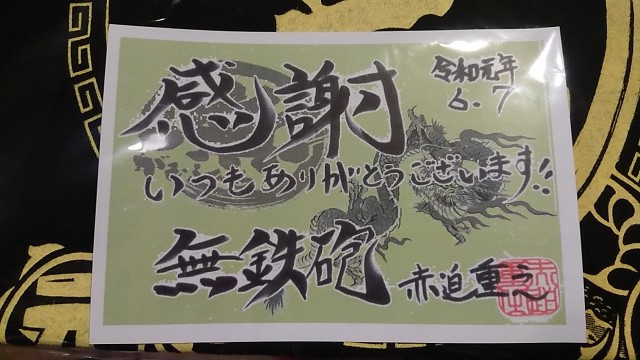 感謝
令和元年
6.7
いつもありがとうございます!!
無鉄砲
赤迫重之